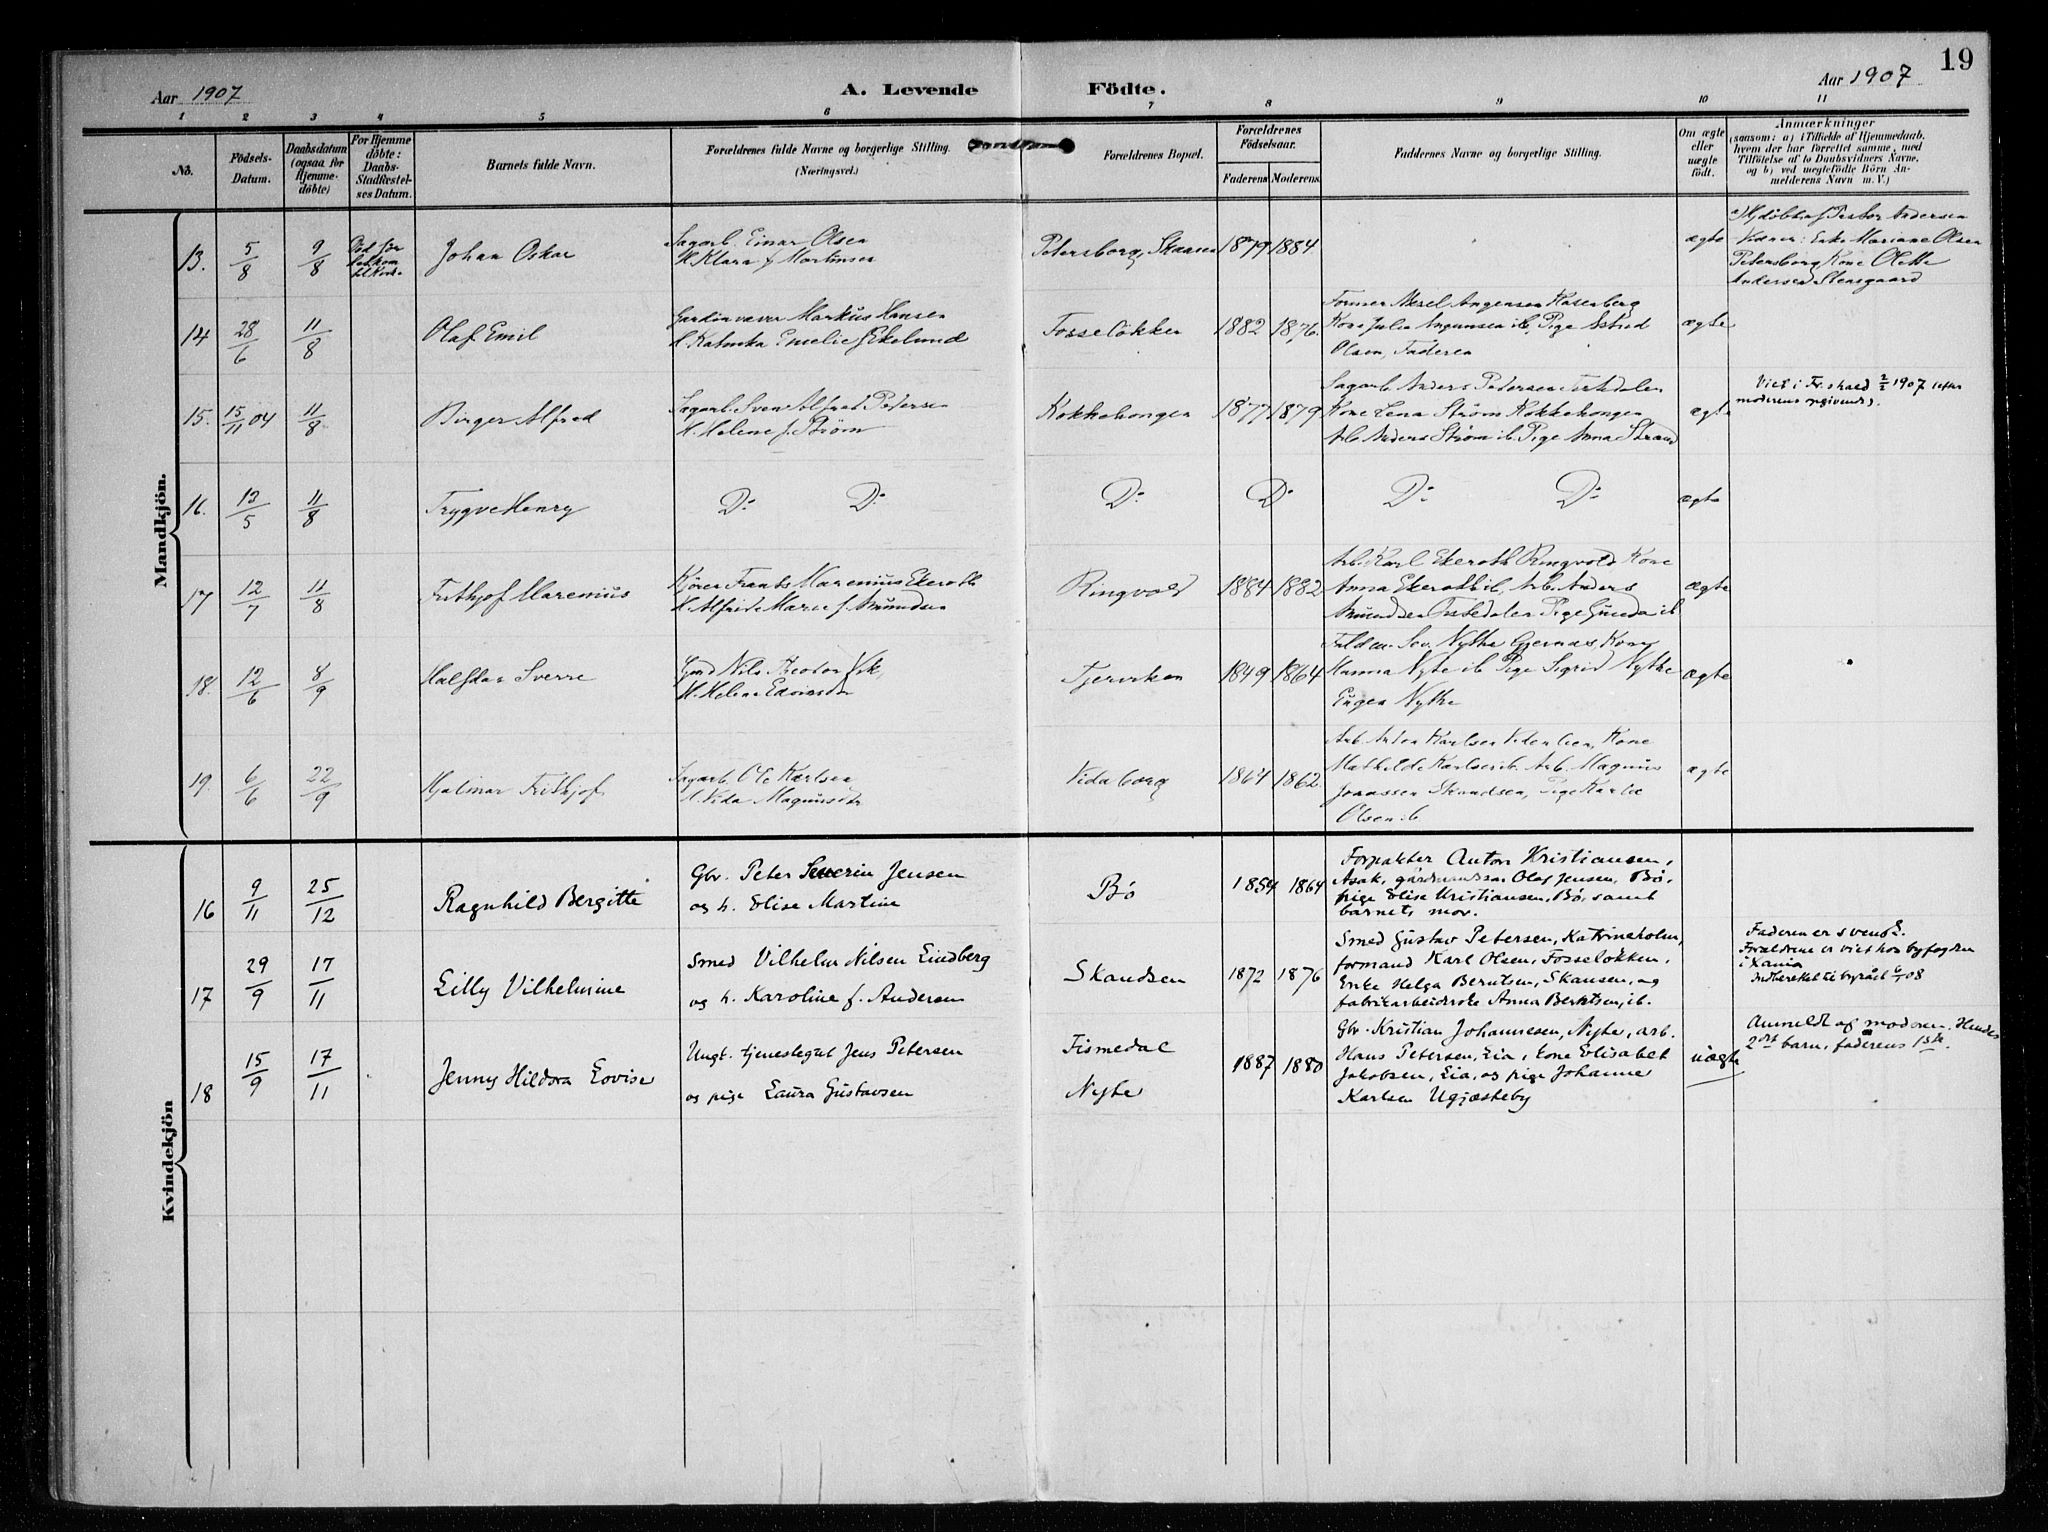 19
Aar 1907 A. Levende Födte. Aar 1907
1 2 3 4 5 6 7 8 9 10 11
No.
Födsels-Datum.
Daabsdatum (ogsaa for Hjemme-döbte)
For Hjemme döbte: Daabs-Stadfæstel-ses Datum.
Barnets fulde Navn.
Forældrenes fulde Navne og borgerlige Stilling. (Næringsvei.)
Forældrenes Bopæl.
Forældrenes Födselsaar.
Faderens. Moderens.
Faddernes Navne og borgerlige Stilling.
Om ægte eller uægte födt.
Anmærkninger
(saasom: a) i Tilfælde af Hjemmedaab.
hvem der har forrettet samme, med
Tilföielse af to Daabsvidners Navne.
og b) ved uegtefödte Börn An-
melderens Navn m. V.)
Mandkjön.
13. 5/8 9/8 Johan Oskar
Sagarb. Einar Olsen
H. Klara f. Martinsen
Petersborg, Skansen 1879 1884 ægte
Hjdøbt af Pastor Andersen
Vidner: Enke Mariane Olsen
Petersborg, Kone Olette
Andersen Stensgaard
14 28/6 11/8 Olaf Emil
Gardinvæver Markus Hansen
H. Katinka Emelie f. Ekelund
Fosseløkken 1882 1876.
Former Aksel Rosenberg
Kone Julia ib, Pige Astrid
Olsen, Faderen
ægte
15. 15/11 04 11/8 Birger Alfred
Sagarb. Sven Alfred Petersen
H. Helene f. Strøm
Kokkehougen 1877 1879
Sagarb. Anders Pedersen Tistedalen
Kone Lena Strøm Kokkehougen
Arb. Anders Strøm ib. Pige Anna Strand
ægte
Viet i Fr.shald 2/2 1907 (efter
moderens opgivende).
16. 13/5 11/8 Trygve Henry
Do Do Do Do Do Do ægte
17 12/7 11/8 Frithjof Marenius
Kjører Frants Marenius Ekeroth
H. Alfrida Marie f. Amundsen
Ringvold 1884 1882
Arb. Karl Ekeroth Ringvold Kone
Anna Ekeroth ib, Arb. Anders
Amundsen Tistedalen Pige Gunda ib
ægte
18. 12/6 8/9 Halfdan Sverre
Gbrd Nils Theodor
H. Helene
Tjerviken 1849 1864
Sev. Nythe Gjernæs, Kone
Hanna Nyte ib Pige Sigrid Nythe
Eugen Nythe
ægte
19. 6/6 22/9 Hjalmar Frithjof
Sagarb. Ole Karlsen
H. Vida Magnusdtr
Vidaborg 1864 1862.
Arb. Anton Karlsen, Kone
Mathilde Karlsen ib. Arb. Magnus
Jonassen Skandsen, Pige Karla
Olsen ib
ægte
Kvindekjön
16 9/11 25/12 Ragnhild Bergitte
Gbr. Peter Severin Jensen
og h. Elise Martine
Bö 1854 1864
Forpakter Anton Kristiansen,
Asak, gårdmandssøn Olaf Jensen, Bø,
pige Elise Kristiansen, Bø, samt
barnets mor.
17 29/9 17/11 Lilly Vilhelmine
Smed Vilhelm Nilsen Lindberg
og h. Karoline f. Andersen
Skandsen 1872 1876
Smed Gustav Petersen, Katrineholm,
formand Karl Olsen, Fosseløkken,
Enke Helga Berntsen, Skansen, og
fabrikarbeiderske Anna Berntsen, ib.
Faderen er svensk.
Forældrene er viet hos byfogden
i Xania
Indberettet til byråd 6/1 08
18 15/9 17/11 Jenny Hildora Lovise
Ungk. tjenestegut Jens Petersen
og pige Laura Gustavsen
Fismedal
Nyte
1887 1880
Gbr. Kristian Johannesen, Nyte, arb.
Hans Petersen, Lia, kone Elisabet
Jakobsen, Lia, og pige Johanne
Karlsen Ugjæsteby
uægte
Anmeldt af moderen. Hendes
2det barn, faderens 1ste.